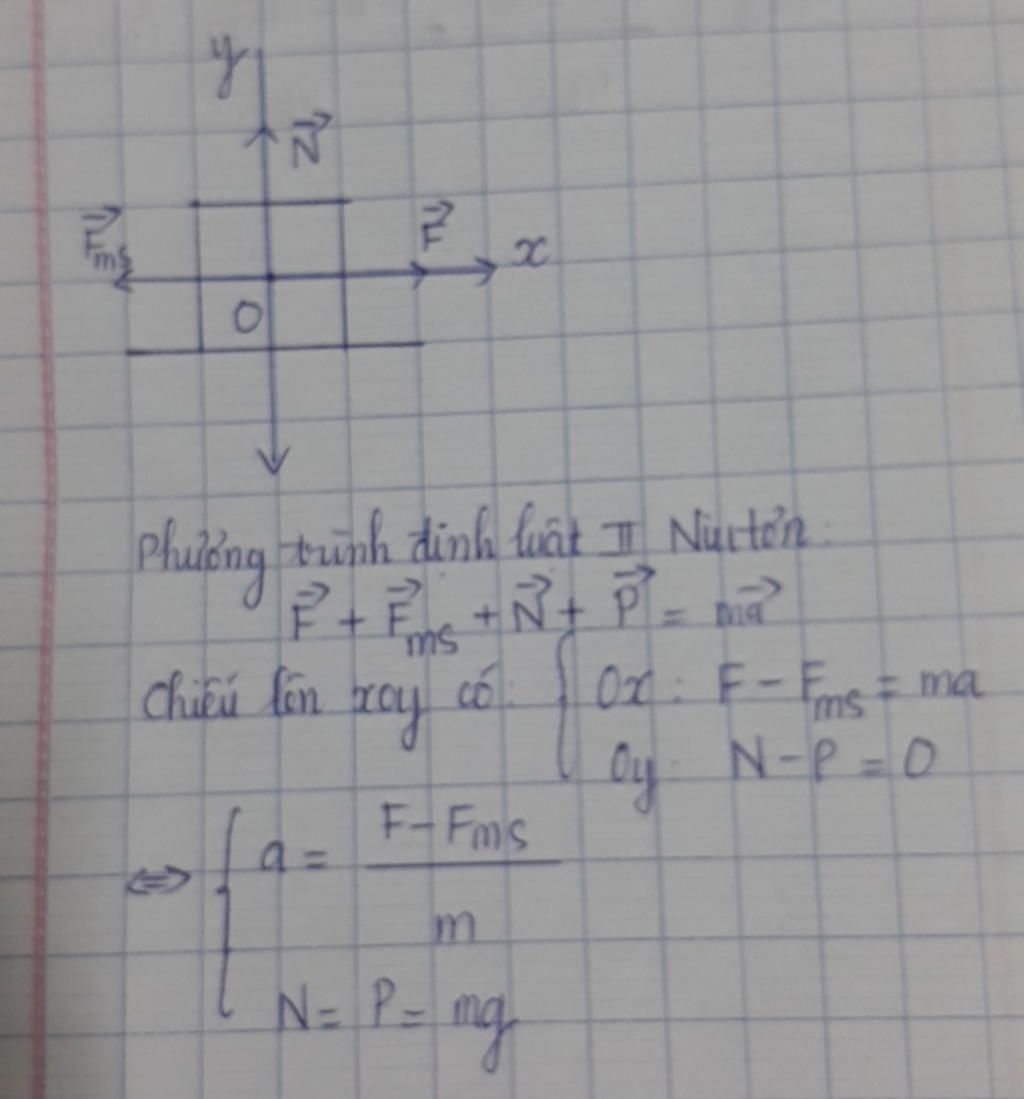 y
N⃗
F⃗ms
F⃗
x
O
Phương trình định luật II Niutơn:
F⃗ + F⃗ms + N⃗ + P⃗ = ma⃗
Chiếu lên xoy có: { Ox: F - Fms = ma
Oy: N - P = 0
⇔ { a = (F - Fms) / m
N = P = mg